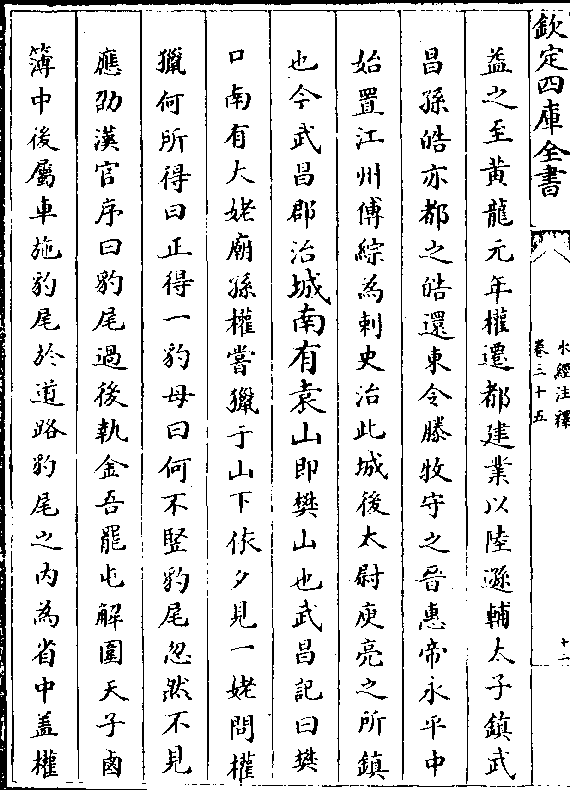 欽定四庫全書
水經注釋
卷三十五
十一
益之至黃龍元年權遷都建業以陸遜輔太子鎮武
昌孫皓亦都之皓還東令滕牧守之晉惠帝永平中
始置江州傅綜為刺史治此城後太尉庾亮之所鎮
也今武昌郡治城南有袁山即樊山也武昌記曰樊
口南有大姥廟孫權嘗獵于山下依夕見一姥問權
獵何所得曰正得一豹母曰何不豎豹尾忽然不見
應劭漢官序曰豹尾過後執金吾罷屯解圍天子鹵
簿中後屬車施豹尾於道路豹尾之內為省中蓋權